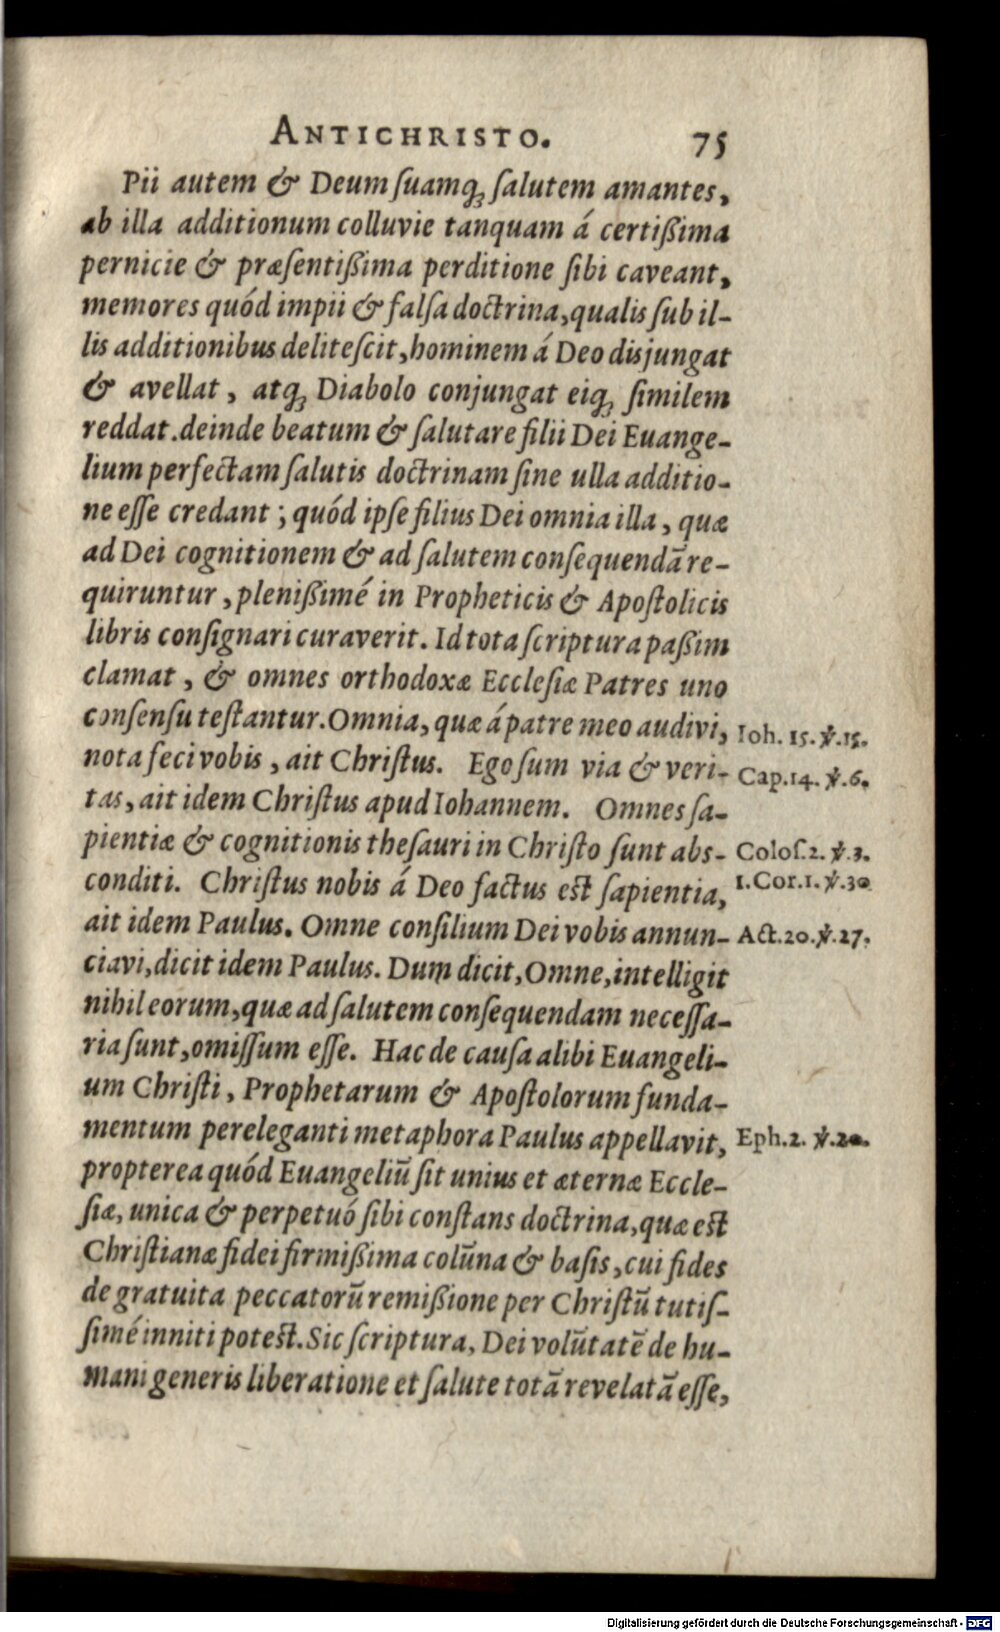 ANTICHRISTO. 75
Pii autem & Deum ſuamq́; ſalutem amantes,
ab illa additionum colluvie tanquam á certißima
pernicie & præſentißima perditione ſibi caveant,
memores quód impii & falſa doctrina, qualis ſub il-
lis additionibus deliteſcit, hominem á Deo disjungat
& avellat, atq; Diabolo conjungat eiq; ſimilem
reddat. deinde beatum & ſalutare filii Dei Euange-
lium perfectam ſalutis doctrinam ſine ulla additio-
ne eſſe credant; quód ipſe filius Dei omnia illa, quæ
ad Dei cognitionem & ad ſalutem conſequendā re-
quiruntur, plenißimé in Propheticis & Apoſtolicis
libris conſignari curaverit. Id tota ſcriptura paßim
clamat, & omnes orthodoxæ Eccleſiæ Patres uno
conſenſu teſtantur. Omnia, quæ á patre meo audivi, Ioh. 15. ℣. 15.
nota feci vobis, ait Chriſtus. Ego ſum via & veri- Cap. 14. ℣. 6.
tas, ait idem Chriſtus apud Iohannem. Omnes ſa-
pientiæ & cognitionis theſauri in Chriſto ſunt abs- Coloſ. 2. ℣. 3.
conditi. Chriſtus nobis á Deo factus eſt ſapientia, 1. Cor. 1. ℣. 30
ait idem Paulus. Omne conſilium Dei vobis annun- Act. 20. ℣. 27.
ciavi, dicit idem Paulus. Dum dicit, Omne, intelligit
nihil eorum, quæ ad ſalutem conſequendam neceſſa-
ria ſunt, omiſſum eſſe. Hac de cauſa alibi Euangeli-
um Chriſti, Prophetarum & Apoſtolorum funda-
mentum pereleganti metaphora Paulus appellavit, Eph. 2. ℣. 20.
propterea quód Euangeliū ſit unius et æternæ Eccle-
ſiæ, unica & perpetuó ſibi conſtans doctrina, quæ eſt
Chriſtianæ fidei firmißima colūna & baſis, cui fides
de gratuita peccatorū remißione per Chriſtū tutiſ-
ſimé inniti poteſt. Sic ſcriptura, Dei volūtatē de hu-
mani generis liberatione et ſalute totā revelatā eſſe,
Digitalisierung gefördert durch die Deutsche Forschungsgemeinschaft - DFG